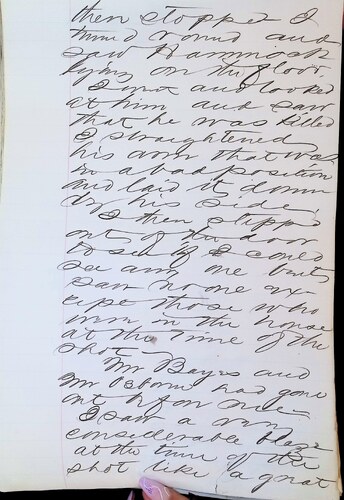 then stopped I
turned round and
saw Hammish
lying on the floor.
I went and looked
at him and saw
that he was killed
I straightened
his arm that was
in a bad position
and laid it down
by his side.
I then stepped
out of the door
to see if I could
see any one but
saw no one ex
cept those who
were in the house
at the time of the
shot
Mr Bayes and
Mr Osborne had gone
out before me
I saw a very
considerable blaze
at the time of the
shot like a great